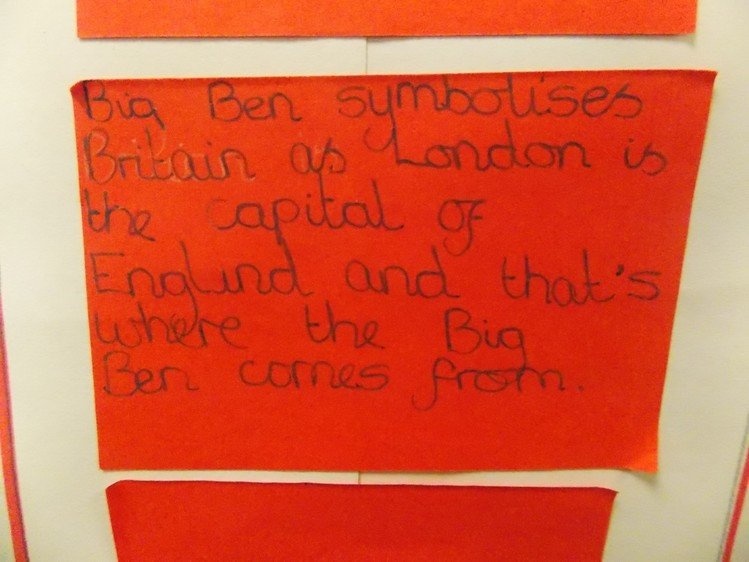 Big Ben symbolises
Britain as London is
the capital of
Englund and that's
where the Big
Ben comes from.